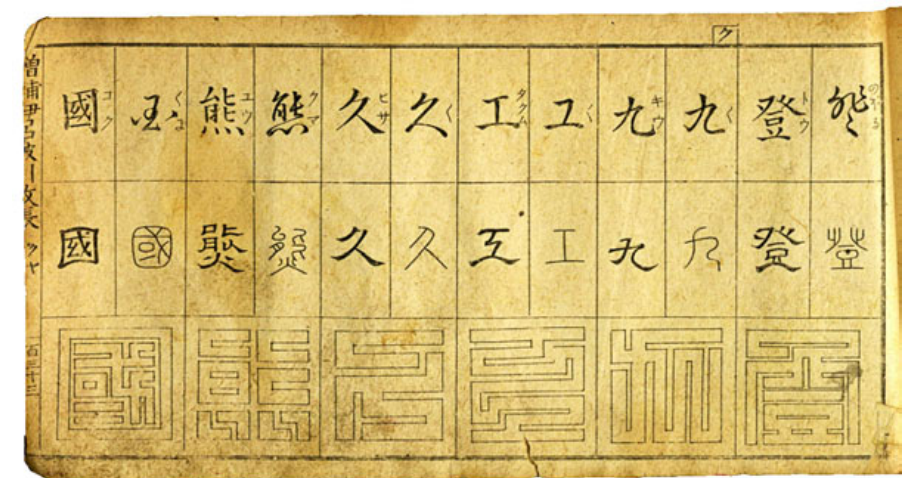 ク
登 のぼる 登 トウ 九 く 九 キウ 工 く 工 タクム 久 く 久 ヒサ 熊 クマ 熊 ユウ 国 くに 國 コク
登 登 九 九 工 工 久 久 熊 熊 國 國
登 九 工 久 熊 國